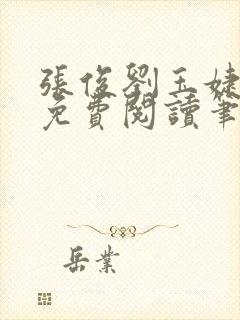 張俊劉玉婕
免費閱讀筆
岳業